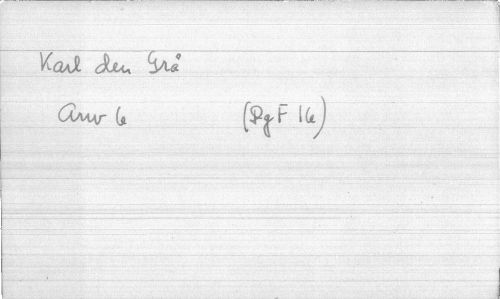 Karl den Grå
Arw 6 (Pg F 16)